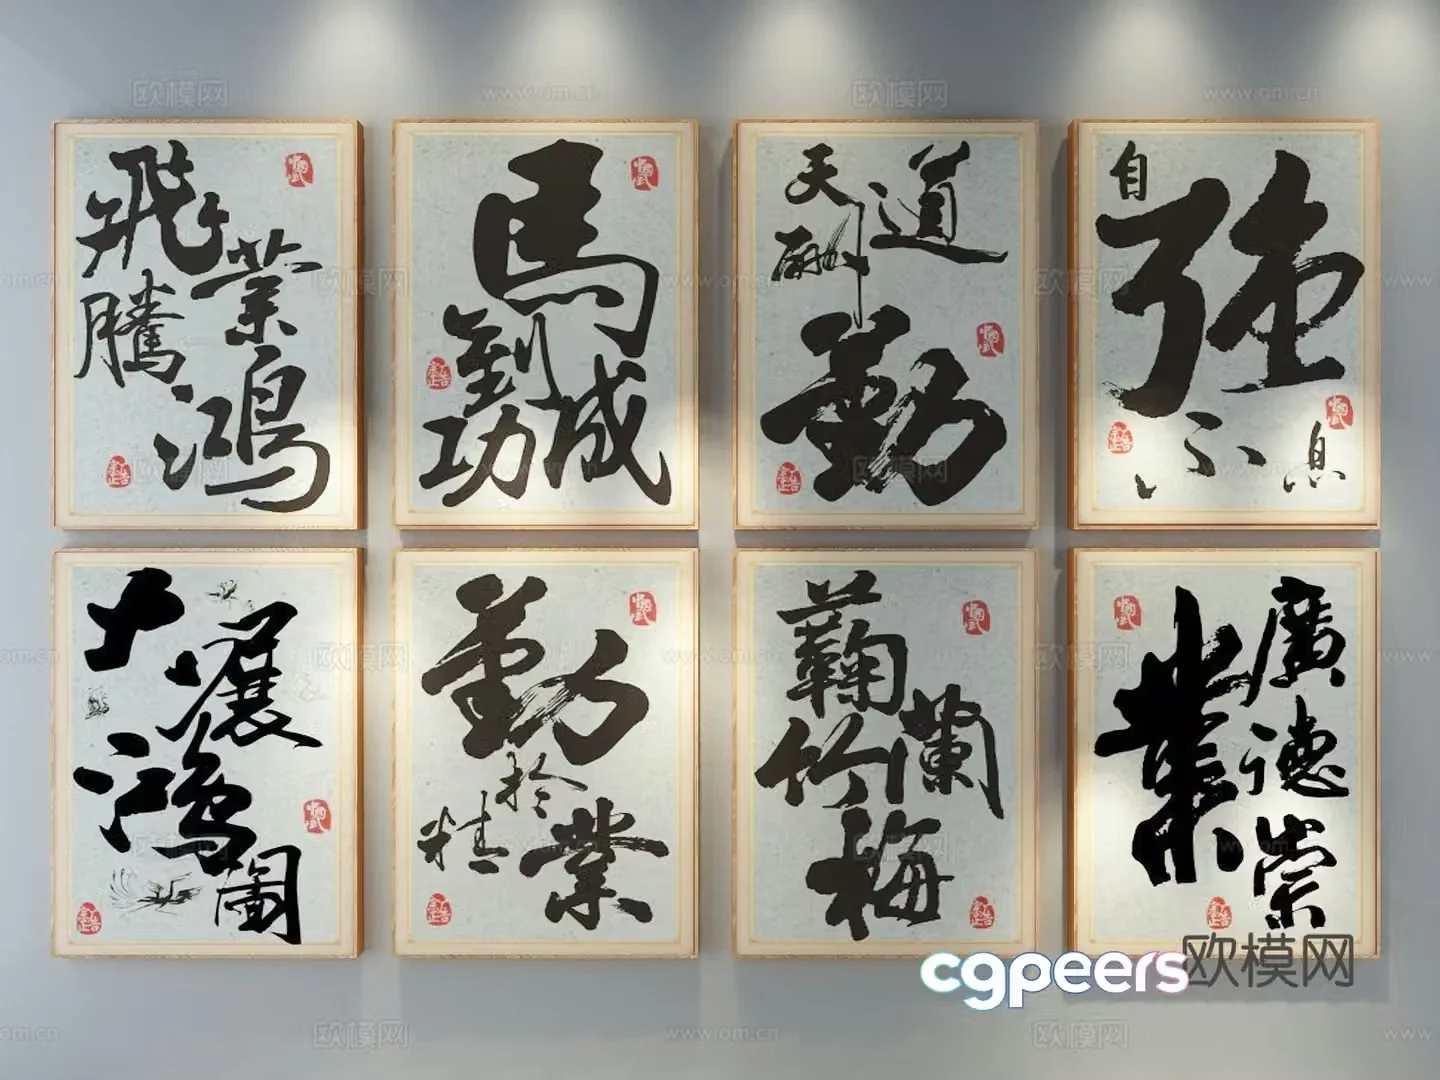 飛
業
騰
鴻
馬
到
成
功
天
道
酬
勤
自
强
不
息
大
展
鴻
圖
勤
於
精
業
蘭
竹
梅
廣
德
崇
業
cgpeers
欧模网